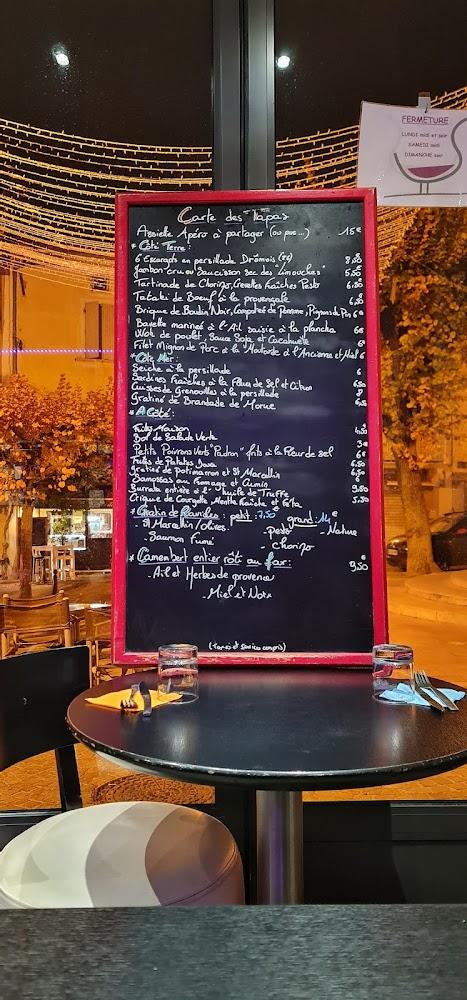 Carte des Tapas
Assiette Apéro à partager (ou pas...) 15€
* Côté Terre:
6 Escargots en persillade Drômois
Jambon cru ou Saucisson sec des "Limouches"
Tartinade de Chorizo, Crevettes fraîches Pesto
Tataki de Boeuf à la provençale
Brique de Boudin Noir, Compotée de Pomme, Pignons de Pin 6€
Bavette mariné à l'Ail saisie à la plancha 6€
Wok de poulet, Sauce Soja et Cacahuète 6€
Filet Mignon de Porc à la Moutarde à l'Ancienne et Miel 6
* Côté Mer:
Seiche à la persillade 6
Sardines fraîches à la Fleur de Sel et Citron 6,50
Cuisses de Grenouilles à la persillade 8
Gratiné de Brandade de Morue 6,50
* A Côté:
Frites Maison
Bol de Salade Verte 3€
Petits Poivrons Verts "Padron" frits à la Fleur de Sel 6€
Frites de Patates Douce
Gratiné de potimarron et St Marcellin 6,50
Samossas au Fromage et Cumin 6
Burrata entière à l'huile de Truffe 9,50
Crique de Courgette, Menthe fraîche et Feta 5,50
* Gratin de Ravioles: petit: 7,50€ grand: 14€
- St Marcellin / olives - pesto - Nature
- Saumon Fumé - Chorizo
* Camembert entier rôti au four: 9,50€
- Ail et Herbes de provence
- Miel et Noix
(Taxes et Service compris)
FERMETURE
LUNDI midi et soir
SAMEDI midi
DIMANCHE soir